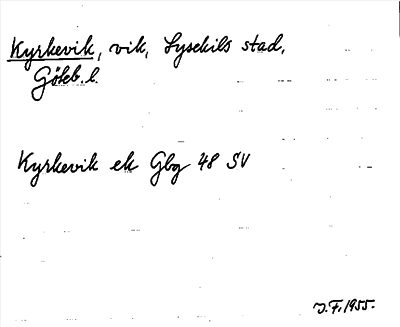 Kyrkevik, vik, Lysekils stad,
Göteb. l.
Kyrkevik ek Gbg 48 SV
J.F. 1955.